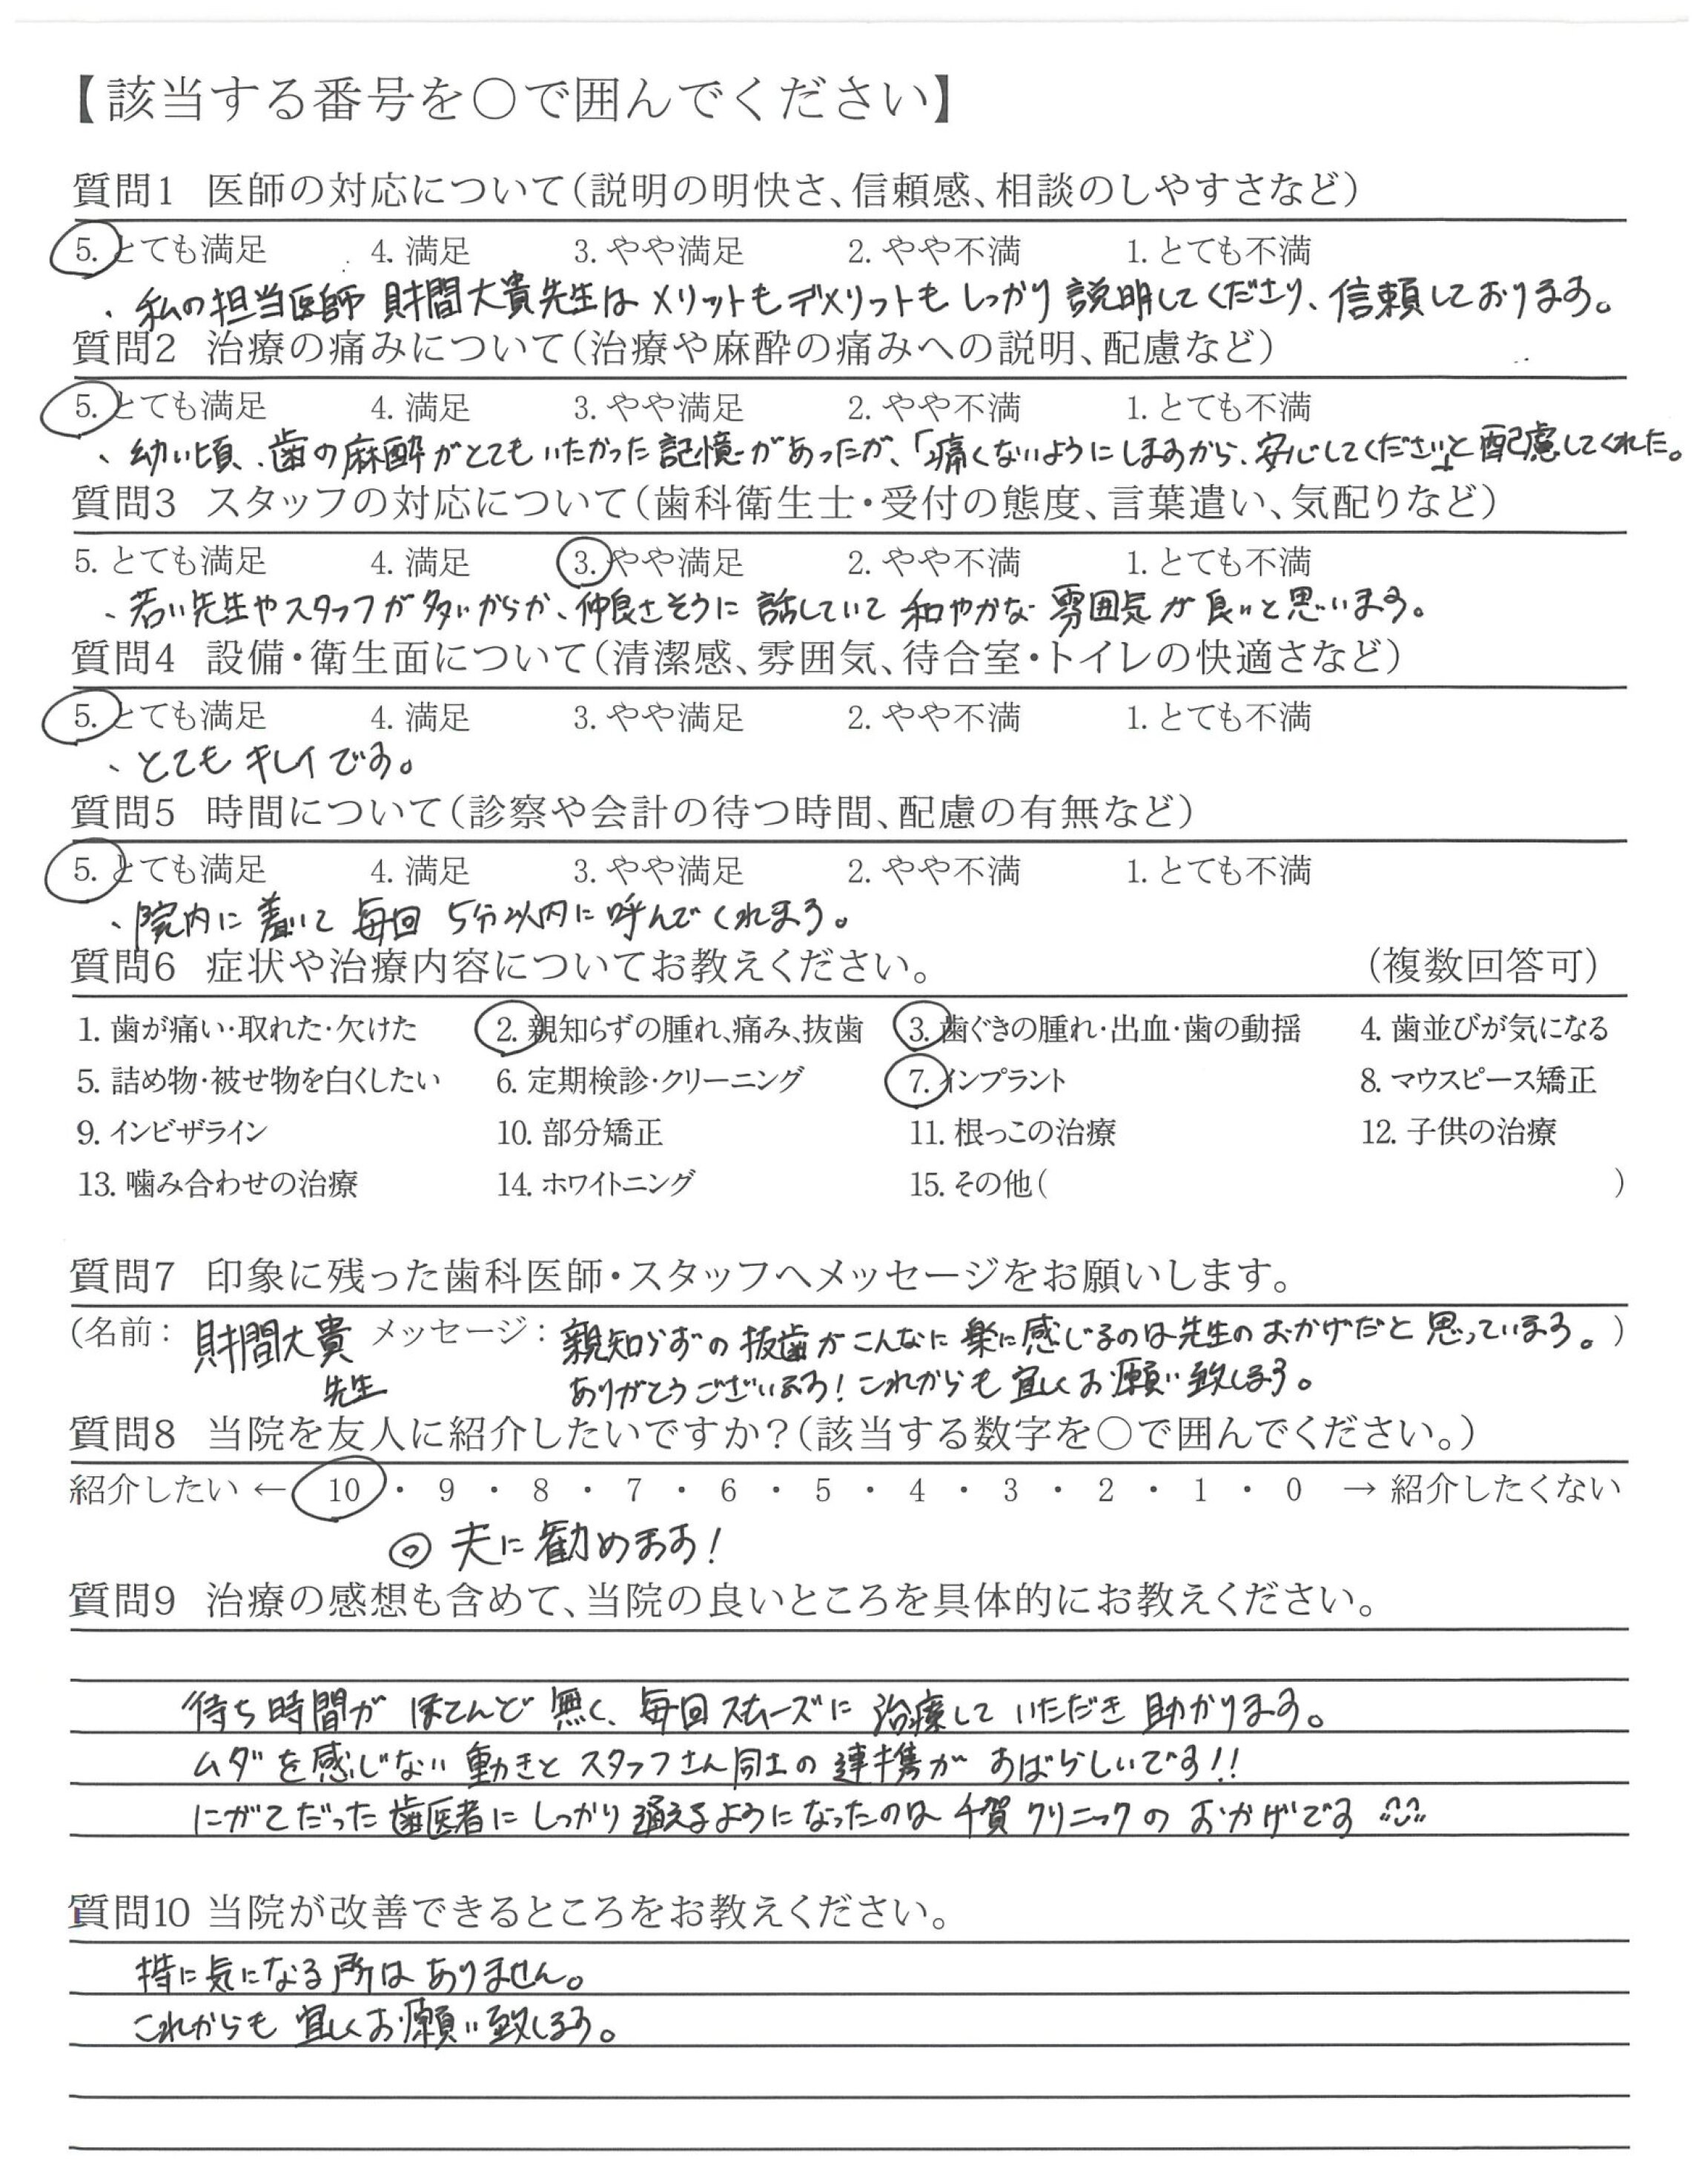 【該当する番号を○で囲んでください】
質問1 医師の対応について(説明の明快さ、信頼感、相談のしやすさなど)
5. とても満足 4. 満足 3. やや満足 2. やや不満 1. とても不満
、私の担当医師 財間大貴先生はメリットもデメリットもしっかり説明してくださり、信頼しております。
質問2 治療の痛みについて(治療や麻酔の痛みへの説明、配慮など)
5. とても満足 4. 満足 3. やや満足 2. やや不満 1. とても不満
、幼い頃、歯の麻酔がとてもいたかった記憶があったが、「痛くないようにしますから、安心してください」と配慮してくれた。
質問3 スタッフの対応について(歯科衛生士・受付の態度、言葉遣い、気配りなど)
5. とても満足 4. 満足 3. やや満足 2. やや不満 1. とても不満
、若い先生やスタッフが多いからか、仲良さそうに話していて和やかな雰囲気が良いと思います。
質問4 設備・衛生面について(清潔感、雰囲気、待合室・トイレの快適さなど)
5. とても満足 4. 満足 3. やや満足 2. やや不満 1. とても不満
、とてもキレイです。
質問5 時間について(診察や会計の待つ時間、配慮の有無など)
5. とても満足 4. 満足 3. やや満足 2. やや不満 1. とても不満
、院内に着いて毎回5分以内に呼んでくれます。
質問6 症状や治療内容についてお教えください。 (複数回答可)
1. 歯が痛い・取れた・欠けた 2. 親知らずの腫れ、痛み、抜歯 3. 歯ぐきの腫れ・出血・歯の動揺 4. 歯並びが気になる
5. 詰め物・被せ物を白くしたい 6. 定期検診・クリーニング 7. インプラント 8. マウスピース矯正
9. インビザライン 10. 部分矯正 11. 根っこの治療 12. 子供の治療
13. 噛み合わせの治療 14. ホワイトニング 15. その他( )
質問7 印象に残った歯科医師・スタッフへメッセージをお願いします。
(名前: 財間大貴 メッセージ: 親知らずの抜歯がこんなに楽に感じるのは先生のおかげだと思っています。)
先生 ありがとうございます!これからも宜しくお願い致します。
質問8 当院を友人に紹介したいですか?(該当する数字を○で囲んでください。)
紹介したい ← 10 ・ 9 ・ 8 ・ 7 ・ 6 ・ 5 ・ 4 ・ 3 ・ 2 ・ 1 ・ 0 → 紹介したくない
◎ 夫に勧めます!
質問9 治療の感想も含めて、当院の良いところを具体的にお教えください。
待ち時間がほとんど無く、毎回スムーズに治療していただき助かります。
ムダを感じない動きとスタッフさん同士の連携がすばらしいです!!
にがてだった歯医者にしっかり通えるようになったのは千賀クリニックのおかげです
質問10 当院が改善できるところをお教えください。
特に気になる所はありません。
これからも宜しくお願い致します。